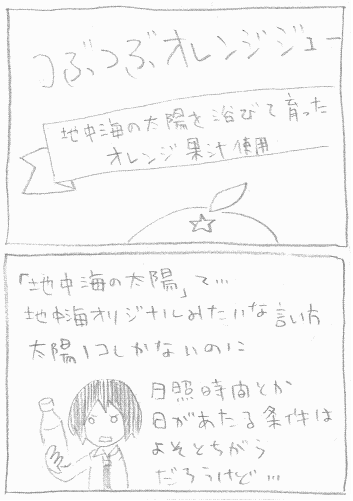 つぶつぶオレンジジュー
地中海の太陽を浴びて育った
オレンジ果汁使用
「地中海の太陽」て…
地中海オリジナルみたいな言い方
太陽1コしかないのに
日照時間とか
日があたる条件は
よそとちがう
だろうけど…